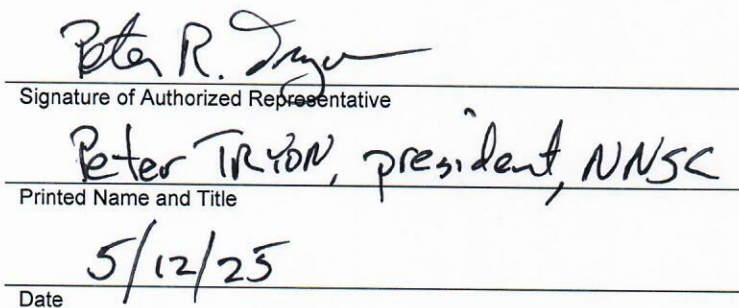 Peter R. Tryon
Signature of Authorized Representative
Peter TRYON, president, NNSC
Printed Name and Title
5/12/25
Date